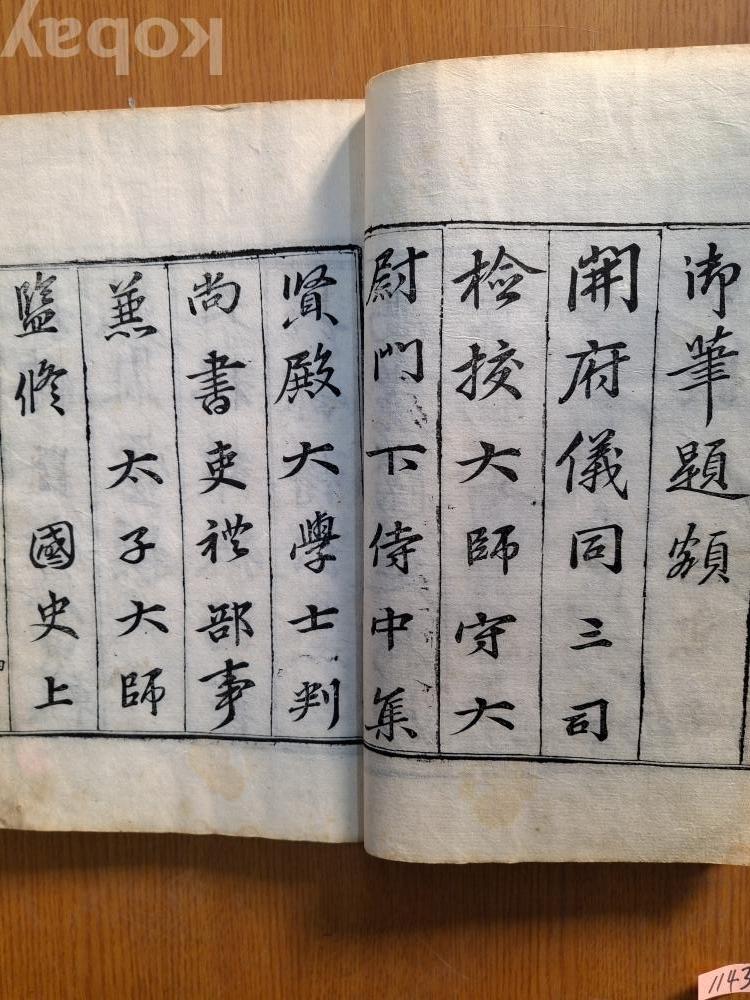 御筆題額
開府儀同三司
檢挍大師守大
尉門下侍中集
賢殿大學士判
尚書吏禮部事
兼太子大師
監修國史上
kobay
1143